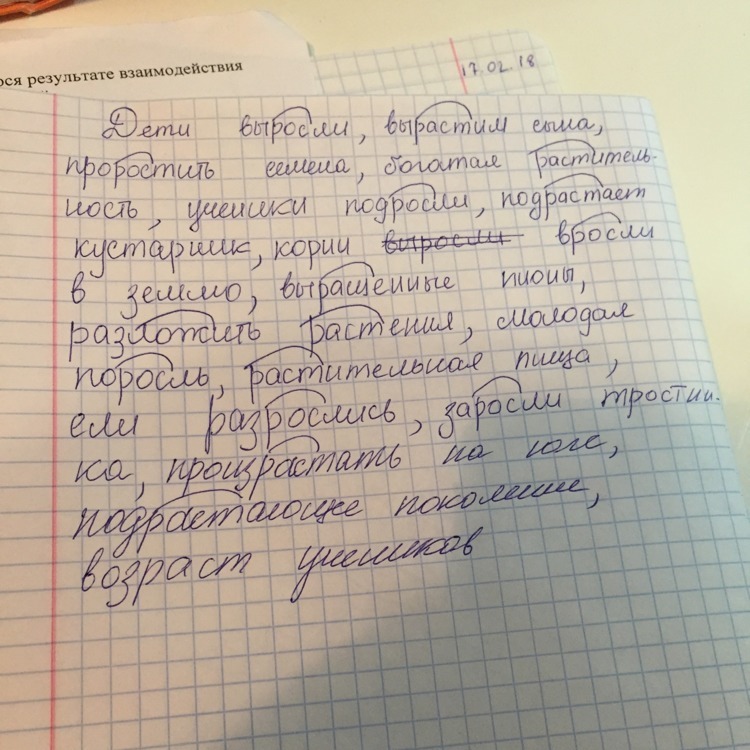 ося результате взаимодействия
17.02.18
Дети выросли, вырастим сына,
проростить семена, богатая раститель-
ность, ученики подросли, подрастает
кустарник, корни выросли вросли
в землю, выращенные пионы,
разложить растения, молодая
поросль, растительная пища,
ели разрослись, заросли тростни-
ка, произрастать на юге,
подрастающее поколение,
возраст учеников